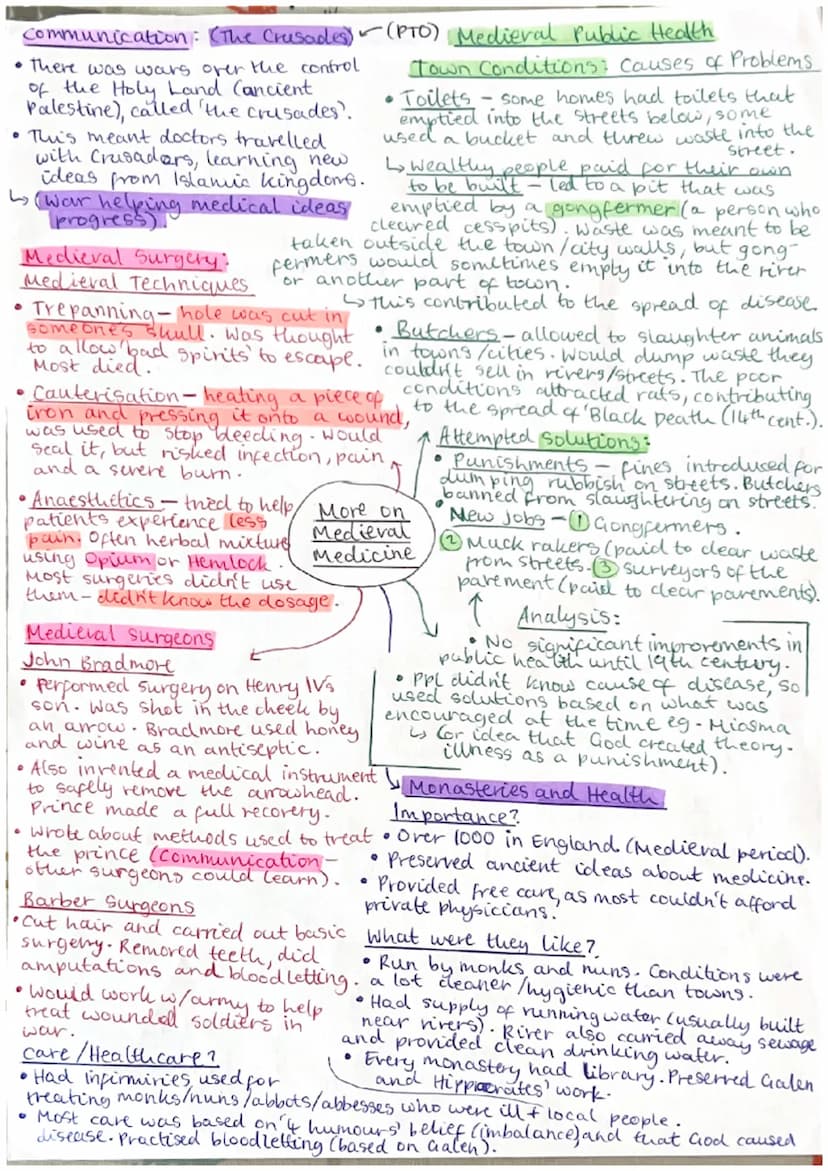 Communication: (The Crusades) ← (PTO)
• There was wars over the control
of the Holy Land (ancient
Palestine), called 'the crusades'.
• This meant doctors travelled
with Crusaders, learning new
ideas from Islamic kingdoms.
↳ (war helping medical ideas
progress).
Medieval Surgery:
Medieval Techniques
• Trepanning – hole was cut in
someones skull. Was thought
to allow 'bad spirits' to escape.
Most died.
• Cauterisation – heating a piece of
iron and pressing it onto a wound,
was used to stop bleeding. Would
seal it, but risked infection, pain
and a severe burn.
• Anaesthetics – tried to help
patients experience less
pain. Often herbal mixture
using Opium or Hemlock.
Most surgeries didn't use
them – didn't know the dosage.
Medieval Surgeons
John Bradmore
• Performed surgery on Henry IV's
son. Was shot in the cheek by
an arrow. Bradmore used honey
and wine as an antiseptic.
• Also invented a medical instrument
to safely remove the arrowhead.
Prince made a full recovery.
• Wrote about methods used to treat
the prince (communication –
other surgeons could learn).
Barber Surgeons
• Cut hair and carried out basic
surgery. Removed teeth, did
amputations and bloodletting.
• Would work w/army to help
treat wounded soldiers in
war.
More on
Medieval
Medicine
Medieval Public Health
Town Conditions: Causes of Problems
• Toilets – some homes had toilets that
emptied into the streets below, some
used a bucket and threw waste into the
street.
↳ Wealthy people paid for their own
to be built – led to a pit that was
emptied by a gongfermer (a person who
cleared cesspits). Waste was meant to be
taken outside the town/city walls, but gong-
fermers would sometimes empty it into the river
or another part of town.
↳ This contributed to the spread of disease.
• Butchers – allowed to slaughter animals
in towns/cities. Would dump waste they
couldn't sell in rivers/streets. The poor
conditions attracted rats, contributing
to the spread of 'Black Death' (14th cent.).
Attempted Solutions:
• Punishments – fines introduced for
dumping rubbish on streets. Butchers
banned from slaughtering on streets.
• New Jobs – ① Gongfermers.
② Muck rakers (paid to clear waste
from streets. ③ Surveyors of the
pavement (paid to clear pavements).
Analysis:
• No significant improvements in
public health until 19th century.
• Ppl didn't know cause of disease, so
used solutions based on what was
encouraged at the time eg - Miasma
↳ (or idea that God created theory.
illness as a punishment).
Monasteries and Health
Importance?
• Over 1000 in England (Medieval period).
• Preserved ancient ideas about medicine.
• Provided free care, as most couldn't afford
private physicians.
What were they like?
• Run by monks and nuns. Conditions were
a lot cleaner/hygienic than towns.
• Had supply of running water (usually built
near rivers). River also carried away sewage
and provided clean drinking water.
• Every monastery had library. Preserved Galen
and Hippocrates' work.
Care/Healthcare?
• Had infirmiries used for
treating monks/nuns/abbots/abbesses who were ill + local people.
• Most care was based on '4 humours' belief (imbalance) and that God caused
disease. Practised bloodletting (based on Galen).